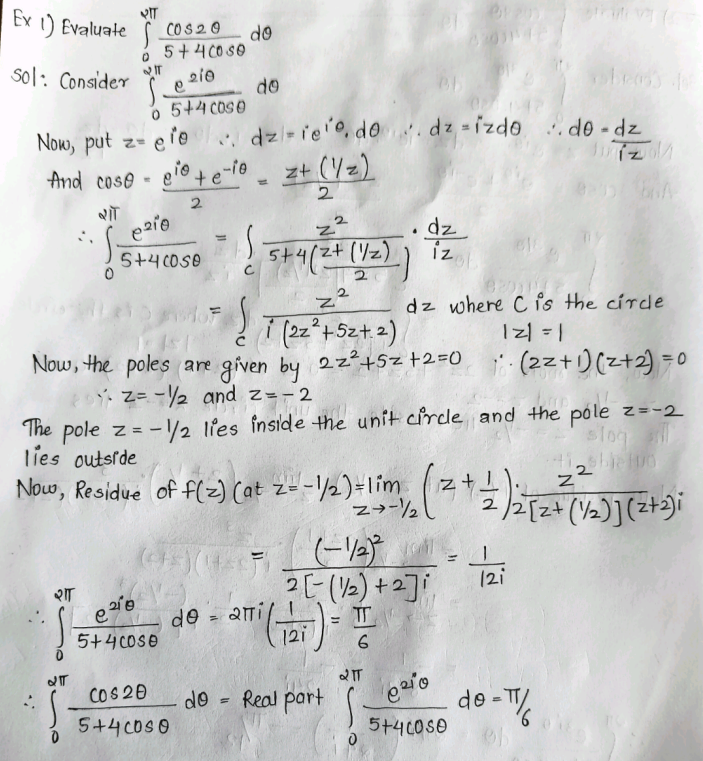 Ex 1) Evaluate ∫₀^2π cos2θ / (5+4cosθ) dθ
Sol: Consider ∫₀^2π e^2iθ / (5+4cosθ) dθ
Now, put z = e^iθ ∴ dz = ie^iθ. dθ ∴ dz = izdθ ∴ dθ = dz/iz
And cosθ = (e^iθ + e^-iθ)/2 = (z+(1/z))/2
∴ ∫₀^2π e^2iθ / (5+4cosθ) = ∫_C z² / (5+4((z+(1/z))/2)) · dz/iz
= ∫_C z² / (i(2z²+5z+2)) dz where C is the circle
|z| = 1
Now, the poles are given by 2z²+5z+2=0 ∴ (2z+1)(z+2)=0
∴ z=-1/2 and z=-2
The pole z=-1/2 lies inside the unit circle and the pole z=-2
lies outside
Now, Residue of f(z) (at z=-1/2) = lim_z→-1/2 (z+1/2) · z² / (2[z+(1/2)](z+2)i)
= (-1/2)² / (2[-(1/2)+2]i) = 1/12i
∴ ∫₀^2π e^2iθ / (5+4cosθ) dθ = 2πi(1/12i) = π/6
∴ ∫₀^2π cos2θ / (5+4cosθ) dθ = Real part ∫₀^2π e^2iθ / (5+4cosθ) dθ = π/6